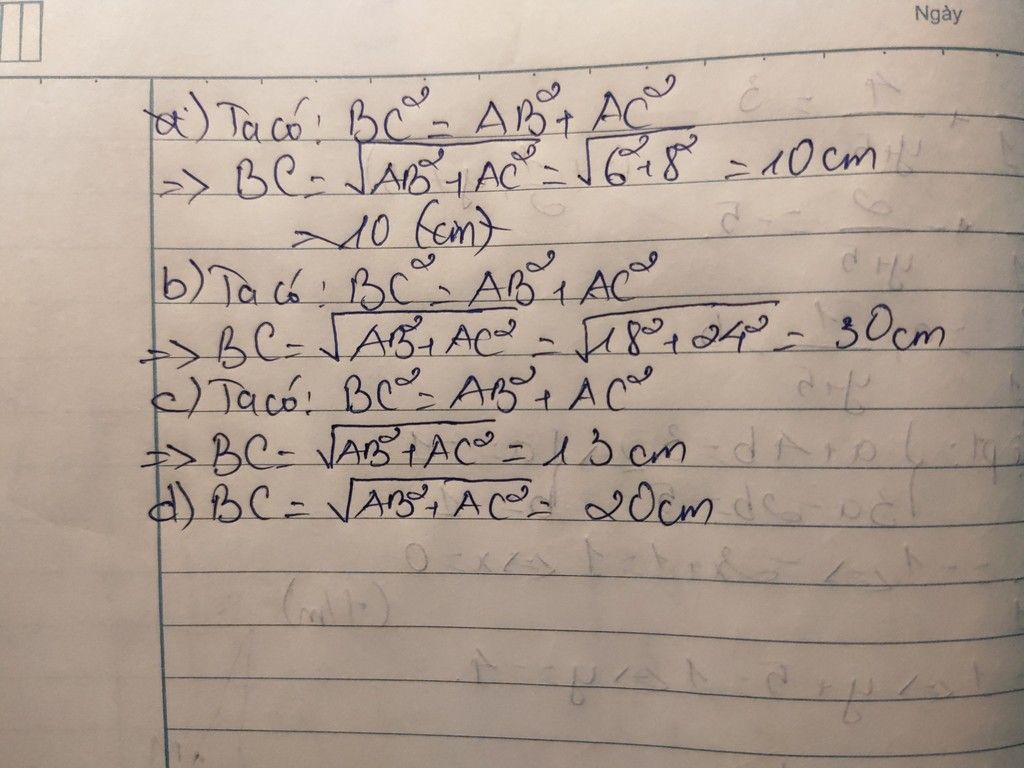 Ngày
a) Ta có: BC² = AB² + AC²
=> BC = √AB² + AC² = √6² + 8² = 10 cm
= 10 (cm)
b) Ta có: BC² = AB² + AC²
=> BC = √AB² + AC² = √18² + 24² = 30 cm
c) Ta có: BC² = AB² + AC²
=> BC = √AB² + AC² = 13 cm
d) BC = √AB² + AC² = 20 cm